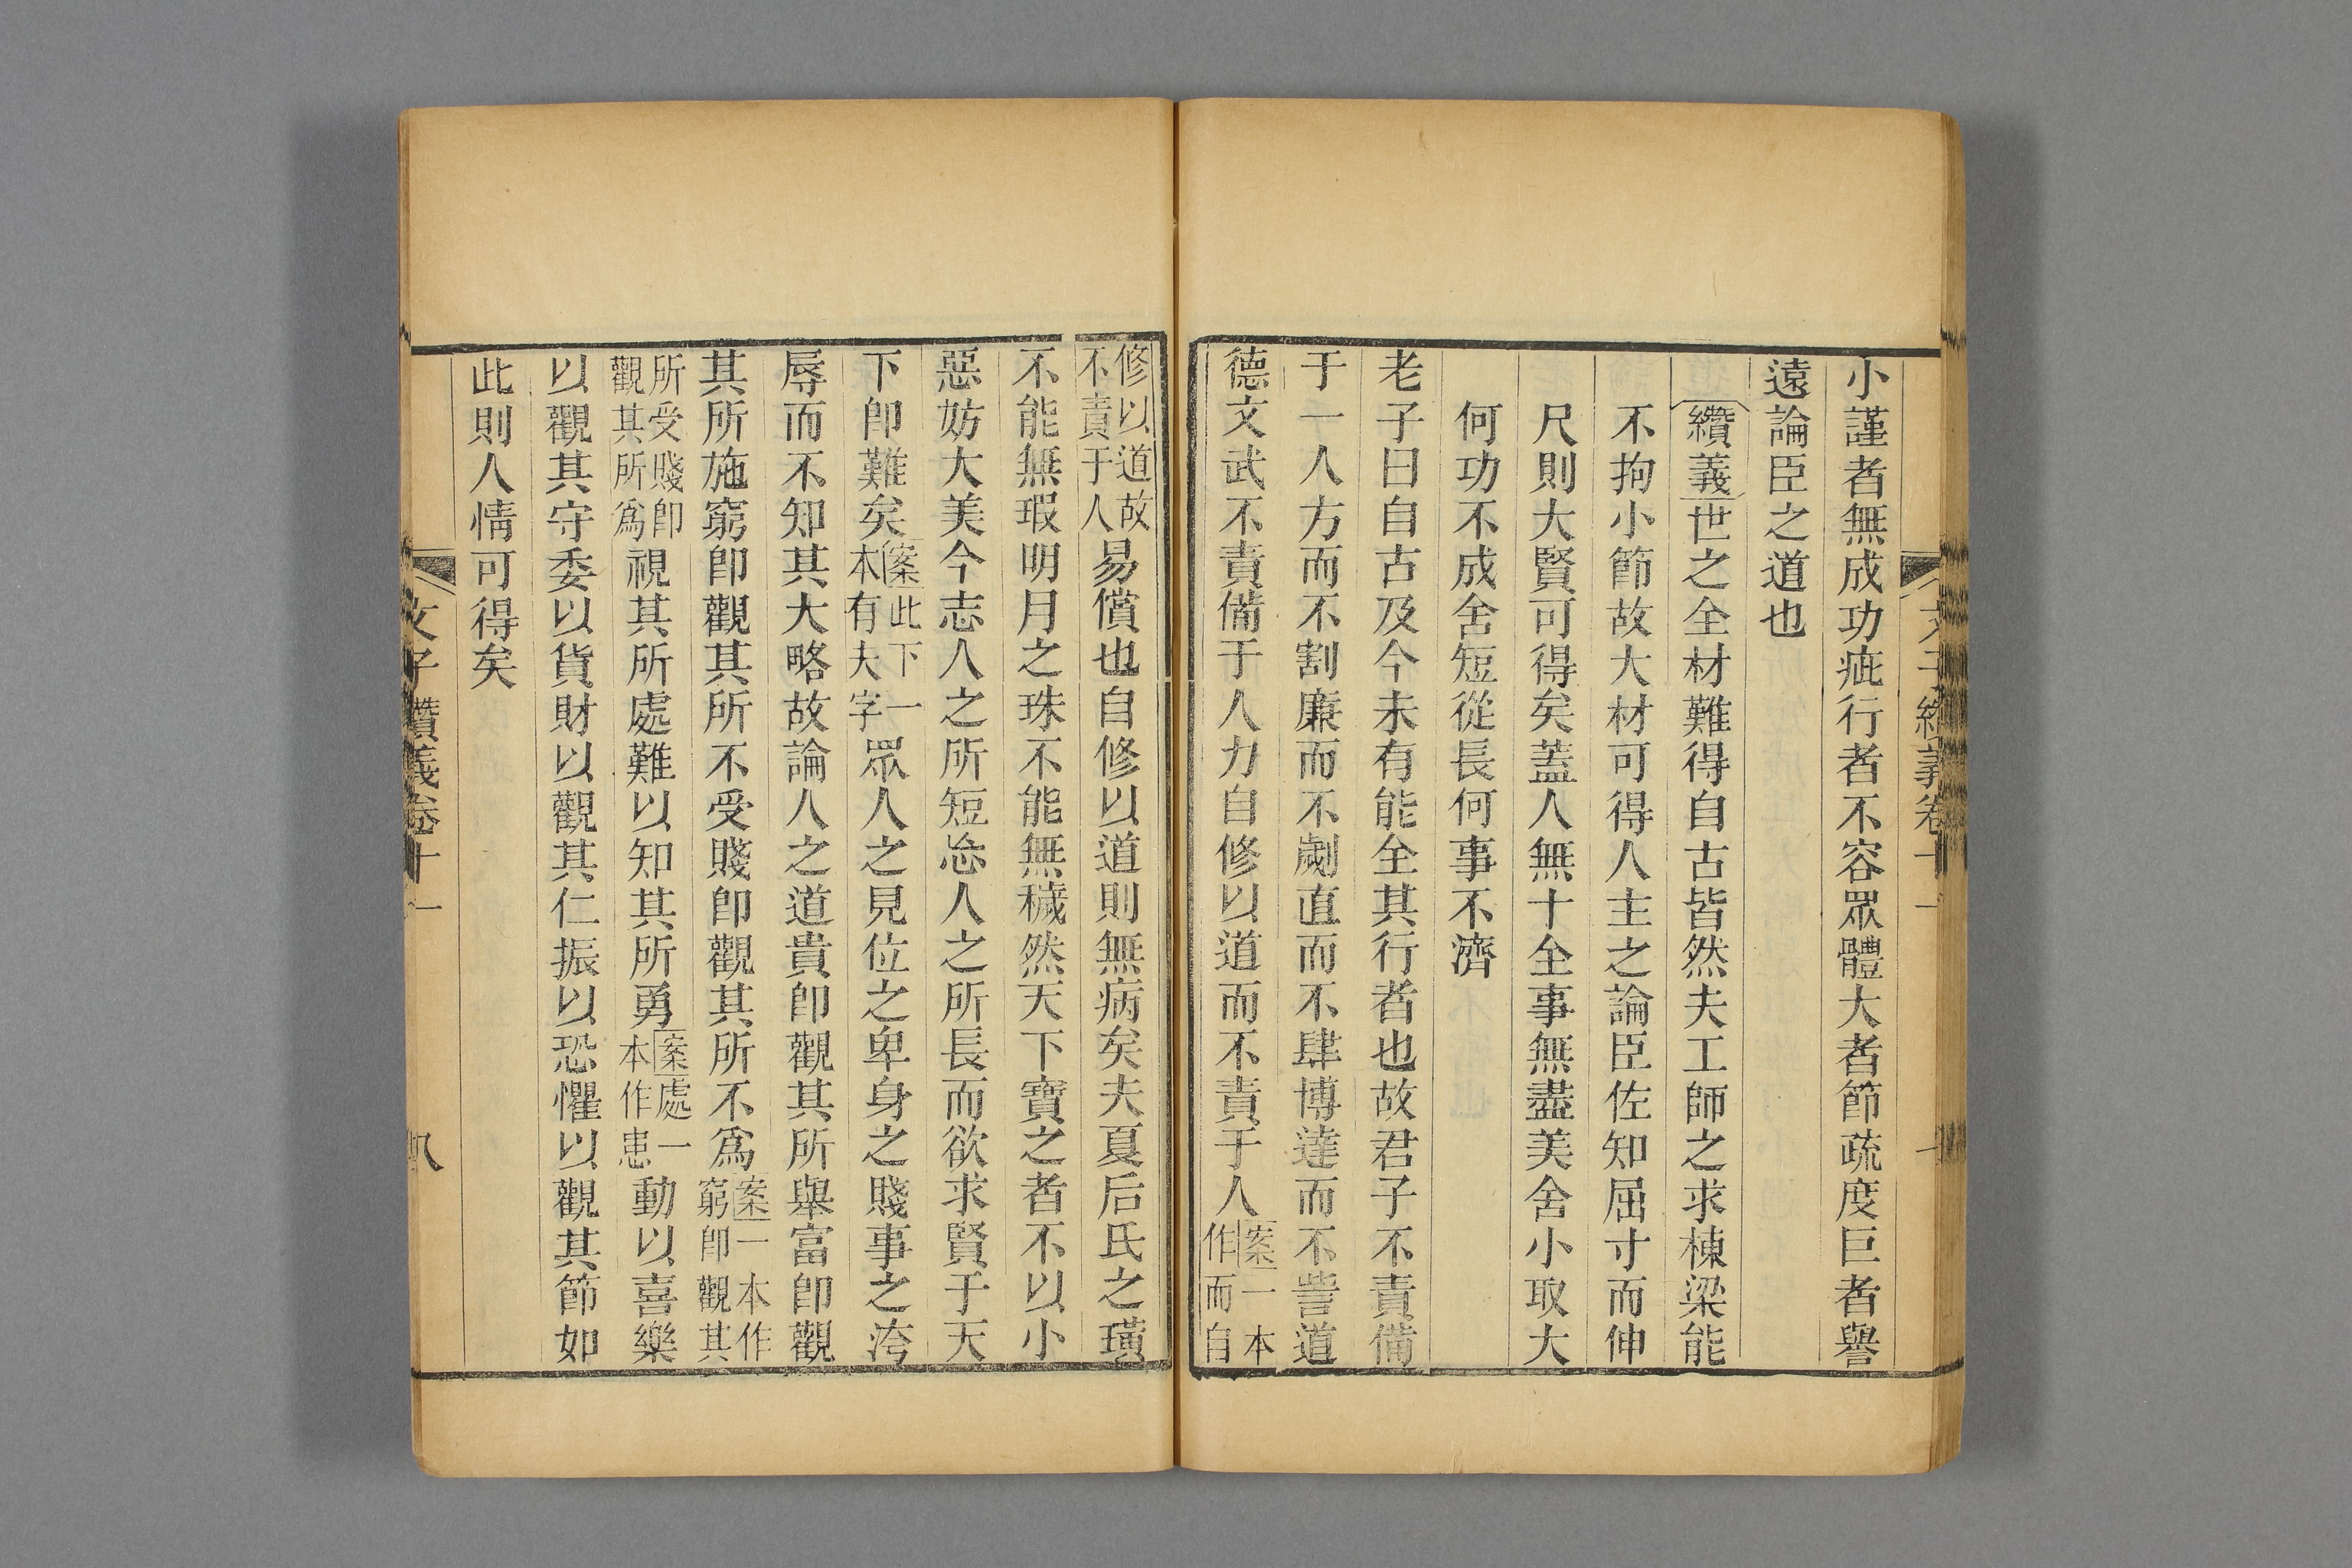 小謹者無成功疵行者不容眾體大者節疏度巨者譽
遠論臣之道也
纘義世之全材難得自古皆然夫工師之求棟梁能
不拘小節故大材可得人主之論臣佐知屈寸而伸
尺則大賢可得矣蓋人無十全事無盡美舍小取大
何功不成舍短從長何事不濟
老子曰自古及今未有能全其行者也故君子不責備
于一人方而不割廉而不劌直而不肆博達而不訾道
德文武不責備于人力自修以道而不責于人案一本作而自
修以道故不責于人易償也自修以道則無病矣夫夏后氏之璜
不能無瑕明月之珠不能無穢然天下寶之者不以小
惡妨大美今志人之所短忘人之所長而欲求賢于天
下卽難矣案此下一本有夫字眾人之見位之卑身之賤事之洿
辱而不知其大略故論人之道貴卽觀其所舉富卽觀
其所施窮卽觀其所不受賤卽觀其所不爲案一本作窮卽觀其
所受賤卽觀其所爲視其所處難以知其所勇案處一本作患動以喜樂
以觀其守委以貨財以觀其仁振以恐懼以觀其節如
此則人情可得矣
文子纘義卷十一
八